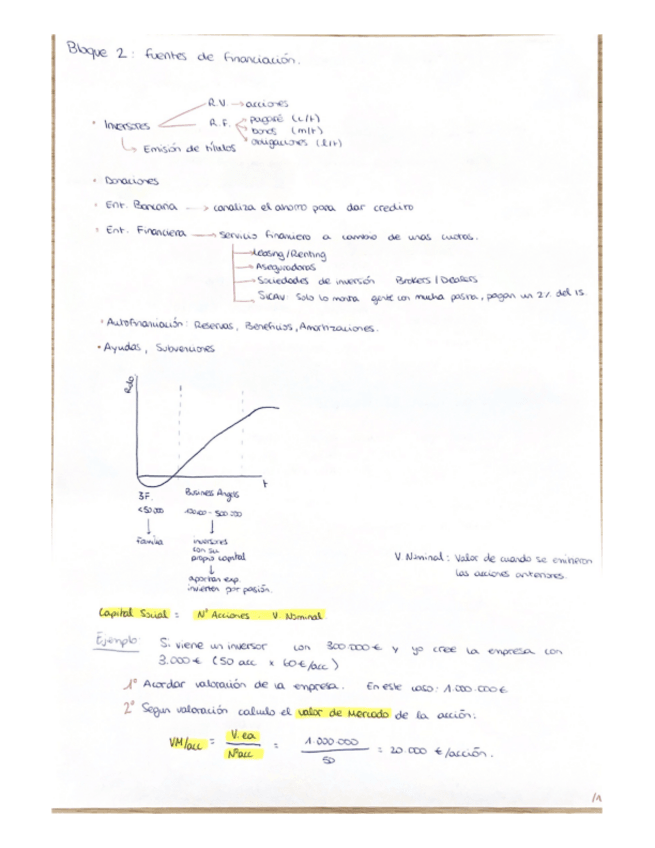 Bloque 2: Fuentes de Financiación.
R.V. → acciones
· Inversores
R.F.
pagaré (c/t)
bonos (m/t)
obligaciones (l/t)
↳ Emisión de títulos
· Donaciones
· Ent. Bancaria → canaliza el ahorro para dar credito
· Ent. Financiera → servicio financiero a cambio de unas cuotas.
→ Leasing/Renting
→ Aseguradoras
→ Sociedades de inversión Brokers/Dealers
→ SICAV: Solo lo monta gente con mucha pasta, pagan un 2% del IS.
· Autofinanciación: Reservas, Beneficios, Amortizaciones.
· Ayudas, Subvenciones
Rdo
t
3F. Business Angels
<50.000 - 500.000
familia
inversores
con su
propio capital
aportan exp.
invierten por pasión.
V. Nominal: Valor de cuando se emitieron
las acciones anteriores.
Capital Social = Nº Acciones · V. Nominal
Ejemplo: Si viene un inversor con 300.000€ y yo creé la empresa con
3.000€ (50 acc x 60€/acc)
1º Acordar valoración de la empresa. En este caso: 1.000.000€
2º Segun valoración calculo el valor de Mercado de la acción:
VM/acc = V. ea / Nº acc = 1.000.000 / 50 = 20.000 €/acción.
/1